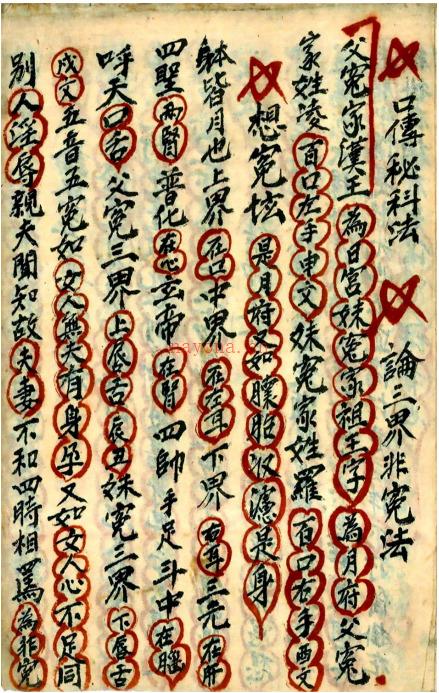 口傳秘科法 論三界非冤法
父冤家漢王為日宮妹冤家祖王字為月府父冤
家姓凌百口左手申文妹冤家姓羅百口右手酉文
想冤坛是月府又如膿胞收濃是身
躰皆月也上界在口中界在左耳下界右耳三元在肝
四聖两賢普化在心玄帝在腎四帥手足斗中在腦
呼天口舌父冤三界上唇舌辰丑妹冤三界下唇舌
戍文五音五冤如女人無夫有身孕又如女人心不足同
別人淫辱親夫聞知故夫妻不和四時相罵為非冤
nayona.cn